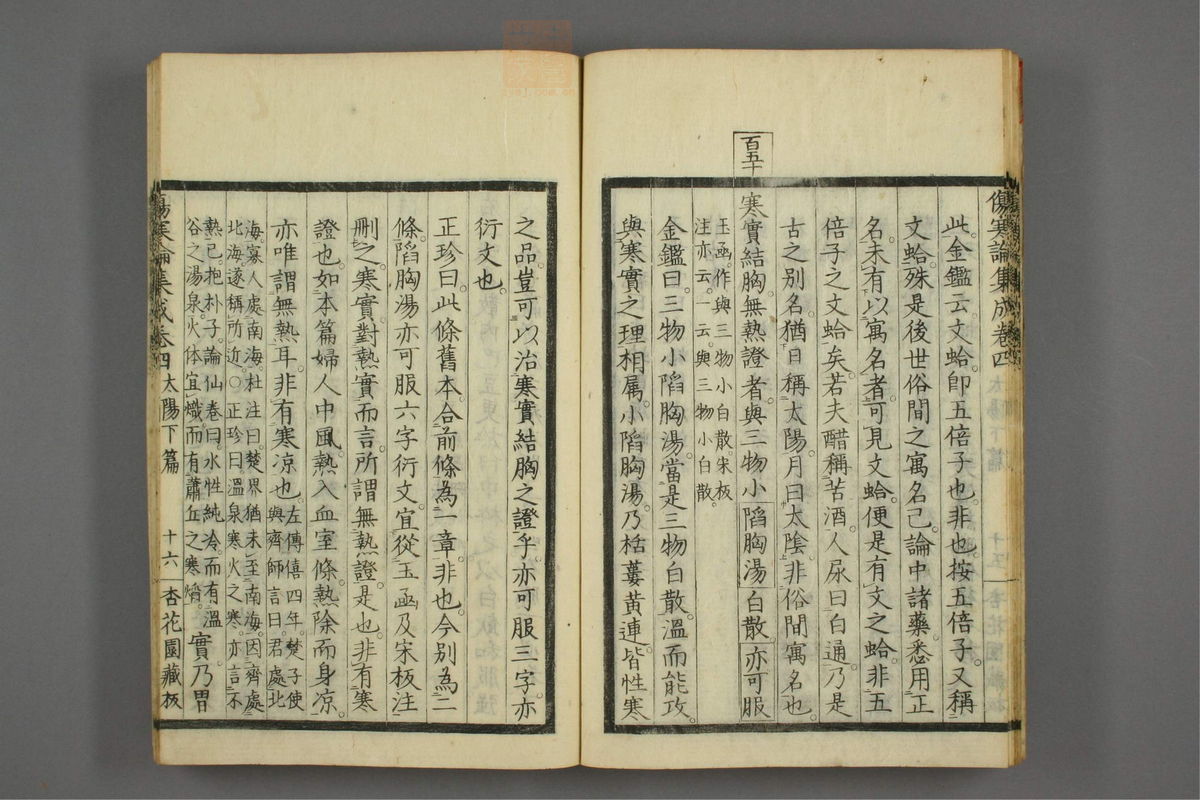 傷寒論集成卷四
此。金鑑云。文蛤。即五倍子也。非也。按五倍子。又稱
文蛤。殊是後世俗間之寓名已。論中諸藥。悉用正
名。未有以寓名者。可見文蛤。便是有文之蛤。非五
倍子之文蛤矣。若夫醋稱苦酒。人尿曰白通。乃是
古之別名。猶日稱太陽。月曰太陰。非俗間寓名也。
百五十
寒實結胸。無熱證者。與三物小陷胸湯白散。亦可服
玉函。作與三物小白散。宋板
注亦云。一云。與三物小白散。
金鑑曰。三物小陷胸湯。當是三物白散。溫而能攻。
與寒實之理相属。小陷胸湯。乃栝蔞黃連。皆性寒
之品。豈可以治寒實結胸之證乎。亦可服三字。亦
衍文也。
正珍曰。此條舊本合前條為一章。非也。今別為二
條。陷胸湯亦可服六字衍文。宜從玉函及宋板注
刪之。寒實。對熱實而言。所謂無熱證。是也。非有寒
證也。如本篇婦人中風。熱入血室條。熱除而身凉。
亦唯謂無熱耳。非有寒凉也。左傳僖四年。楚子使
與齊師言曰。君處北
海。寡人處南海。杜注曰。楚界猶未至南海。因齊處
北海。遂稱所近。○正珍曰。溫泉寒火之寒。亦言不
熱已。抱朴子。論仙卷曰。水性純冷。而有溫
谷之湯泉。火体宜熾。而有蕭丘之寒熖。實。乃胃
傷寒論集成卷四 太陽下篇 十六 杏花園藏板